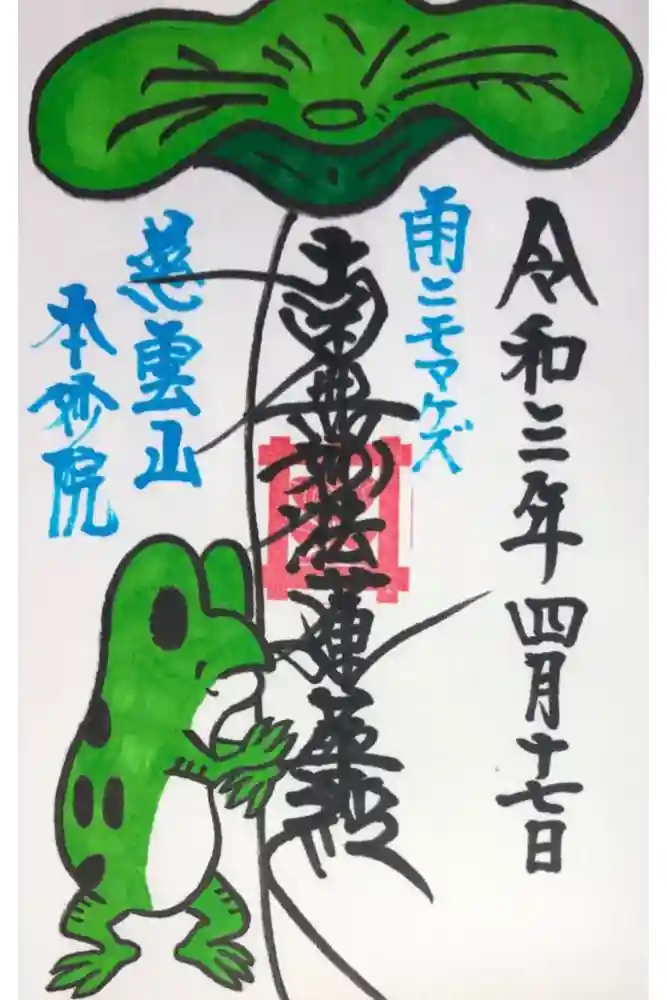 令和三年四月十七日
雨ニモマケズ
南無妙法蓮華経
慈雲山
本妙院